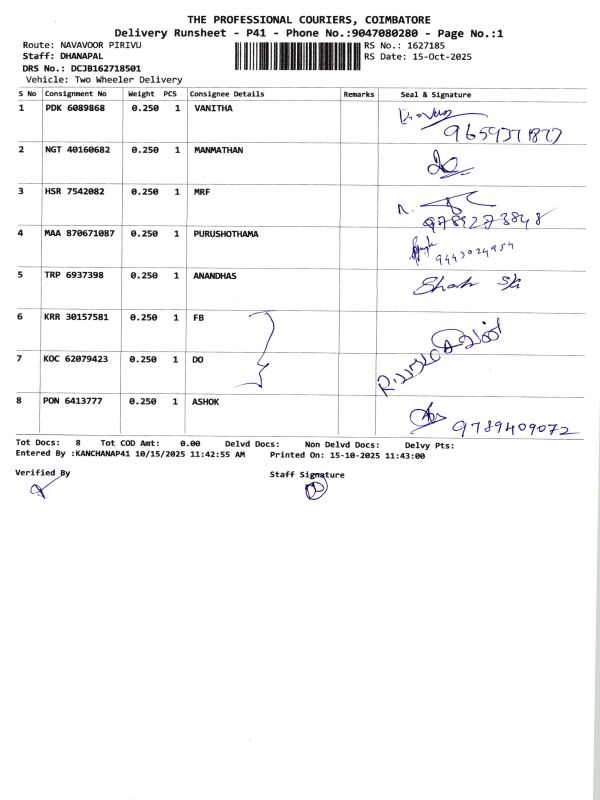 THE PROFESSIONAL COURIERS, COIMBATORE
Delivery Runsheet - P41 - Phone No.:9047080280 - Page No.:1
Route: NAVAVOOR PIRIVU RS No.: 1627185
Staff: DHANAPAL RS Date: 15-Oct-2025
DRS No.: DCJB162718501
Vehicle: Two Wheeler Delivery
S No Consignment No Weight PCS Consignee Details Remarks Seal & Signature
1 PDK 6089868 0.250 1 VANITHA
2 NGT 40160682 0.250 1 MANMATHAN
3 HSR 7542082 0.250 1 MRF
9789273848
4 MAA 870671087 0.250 1 PURUSHOTHAMA
9443024954
5 TRP 6937398 0.250 1 ANANDHAS
6 KRR 30157581 0.250 1 FB
7 KOC 62079423 0.250 1 DO
8 PON 6413777 0.250 1 ASHOK
9789409072
Tot Docs: 8 Tot COD Amt: 0.00 Delvd Docs: Non Delvd Docs: Delvy Pts:
Entered By :KANCHANAP41 10/15/2025 11:42:55 AM Printed On: 15-10-2025 11:43:00
Verified By Staff Signature